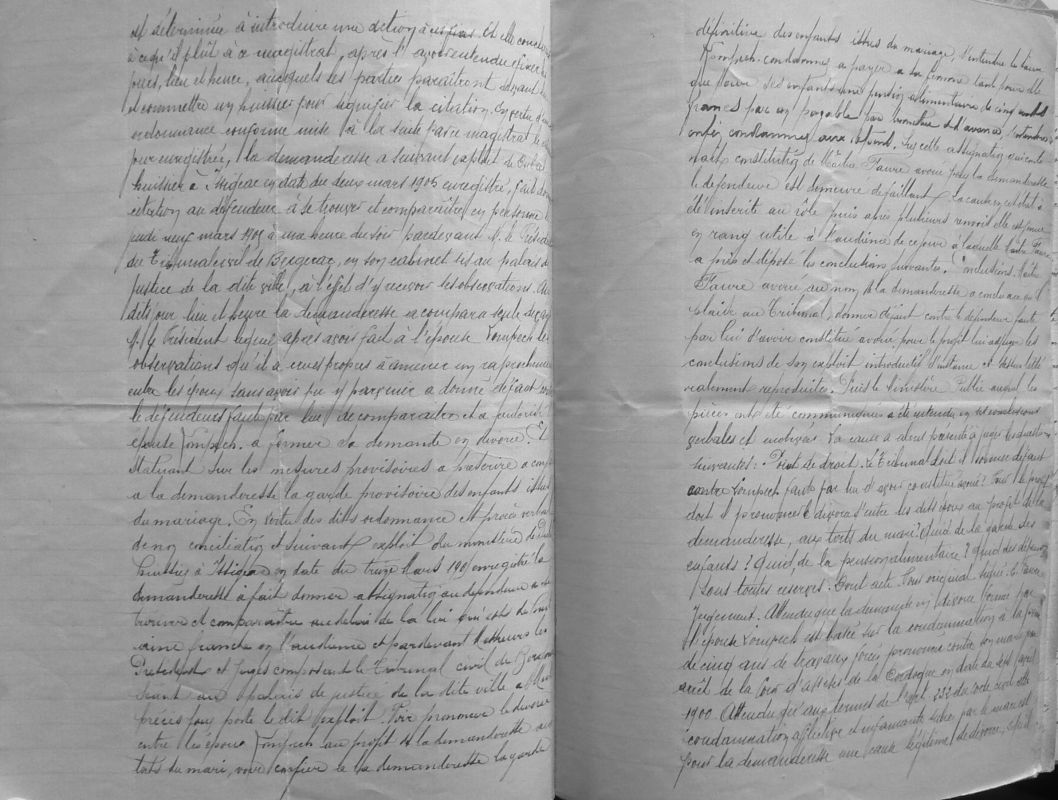 est déterminée à introduire une action à ces fins. Et elle conclut
à ce qu'il plût à ce magistrat, après l'avoir entendue fixer les
jour, lieu et heure, auxquels les parties paraîtront devant
et commettre un huissier pour signifier la citation. En vertu d'une
ordonnance conforme mise à la suite par ce magistrat le
jour enregistrée, la demanderesse a suivant exploit de
huissier à Issigeac en date du deux mars 1905 enregistré, fait donner
citation au défendeur à se trouver et comparaître en personne le
jeudi neuf mars 1905 à une heure du soir pardevant M. le Président
du Tribunal civil de Bergerac, en son cabinet sis au palais de
justice de la dite ville, à l'effet d'y recevoir ses observations. Aux
dits jour lieu et heure la demanderesse a comparu seule devant
M. le Président lequel après avoir fait à l'épouse Lompech les
observations qu'il a crues propres à amener un rapprochement
entre les époux sans avoir pu y parvenir a donné défaut contre
le défendeur faute par lui de comparaître et a autorisé
épouse Lompech à former sa demande en divorce. Et
statuant sur les mesures provisoires à prescrire a confié
à la demanderesse la garde provisoire des enfants issus
du mariage. En vertu des dits ordonnance et procès verbal
de non conciliation et suivant exploit du ministère de
huissier à Issigeac en date du treize Mars 1905 enregistré la
demanderesse a fait donner assignation au défendeur à se
trouver et comparaître au délai de la loi qui est de huitaine
franche en l'audience et pardevant Messieurs les
Président et juges composant le Tribunal civil de Bergerac
séant au palais de justice de la dite ville
précis pour porte le dit exploit. Voir prononcer le divorce
entre les époux Lompech au profit de la demanderesse aux
torts du mari, voir confier à la demanderesse la garde
définitive des enfants issus du mariage. S'entendre le sieur
Lompech condamner à payer à sa femme tant pour elle
que pour ses enfants une pension alimentaire de cinq cents
francs par an payable par trimestre et d'avance, s'entendre
enfin condamner aux dépens. Sur cette assignation qui conte-
nait constitution de Maître Faure avoué pour la demanderesse
le défendeur est demeuré défaillant. La cause en cet état a
été inscrite au rôle puis après plusieurs renvois elle est venue
en rang utile à l'audience de ce jour à laquelle Maître Faure
a pris et déposé les conclusions suivantes. Conclusions. Maître
Faure avoué au nom de la demanderesse a conclu à ce qu'il
plaise au Tribunal, donner défaut contre le défendeur faute
par lui d'avoir constitué avoué pour le profit lui adjuger les
conclusions de son exploit introductif d'instance ci dessus litté-
ralement reproduites. Puis le Ministère Public auquel les
pièces ont été communiquées a été entendu en ses conclusions
verbales et motivées. La cause a alors présenté à juger les questions
suivantes : Point de droit. Le Tribunal doit il donner défaut
contre Lompech faute par lui d'avoir constitué avoué ? Pour le profit
doit il prononcer le divorce d'entre les dits époux au profit de la
demanderesse, aux torts du mari ? Quid de la garde des
enfants ? Quid de la pension alimentaire ? Quid des dépens
Sous toutes réserves. Dont acte. Sous original signé E. Faure
Jugement. Attendu que la demande en divorce formée par
l'épouse Lompech est basée sur la condamnation à la peine
de cinq ans de travaux forcés prononcée contre son mari par
arrêt de la Cour d'assises de la Dordogne en date du dix avril
1900. Attendu qu'aux termes de l'art. 232 du code civil cette
condamnation afflictive et infamante subie par le mari est
pour la demanderesse une cause légitime de divorce,